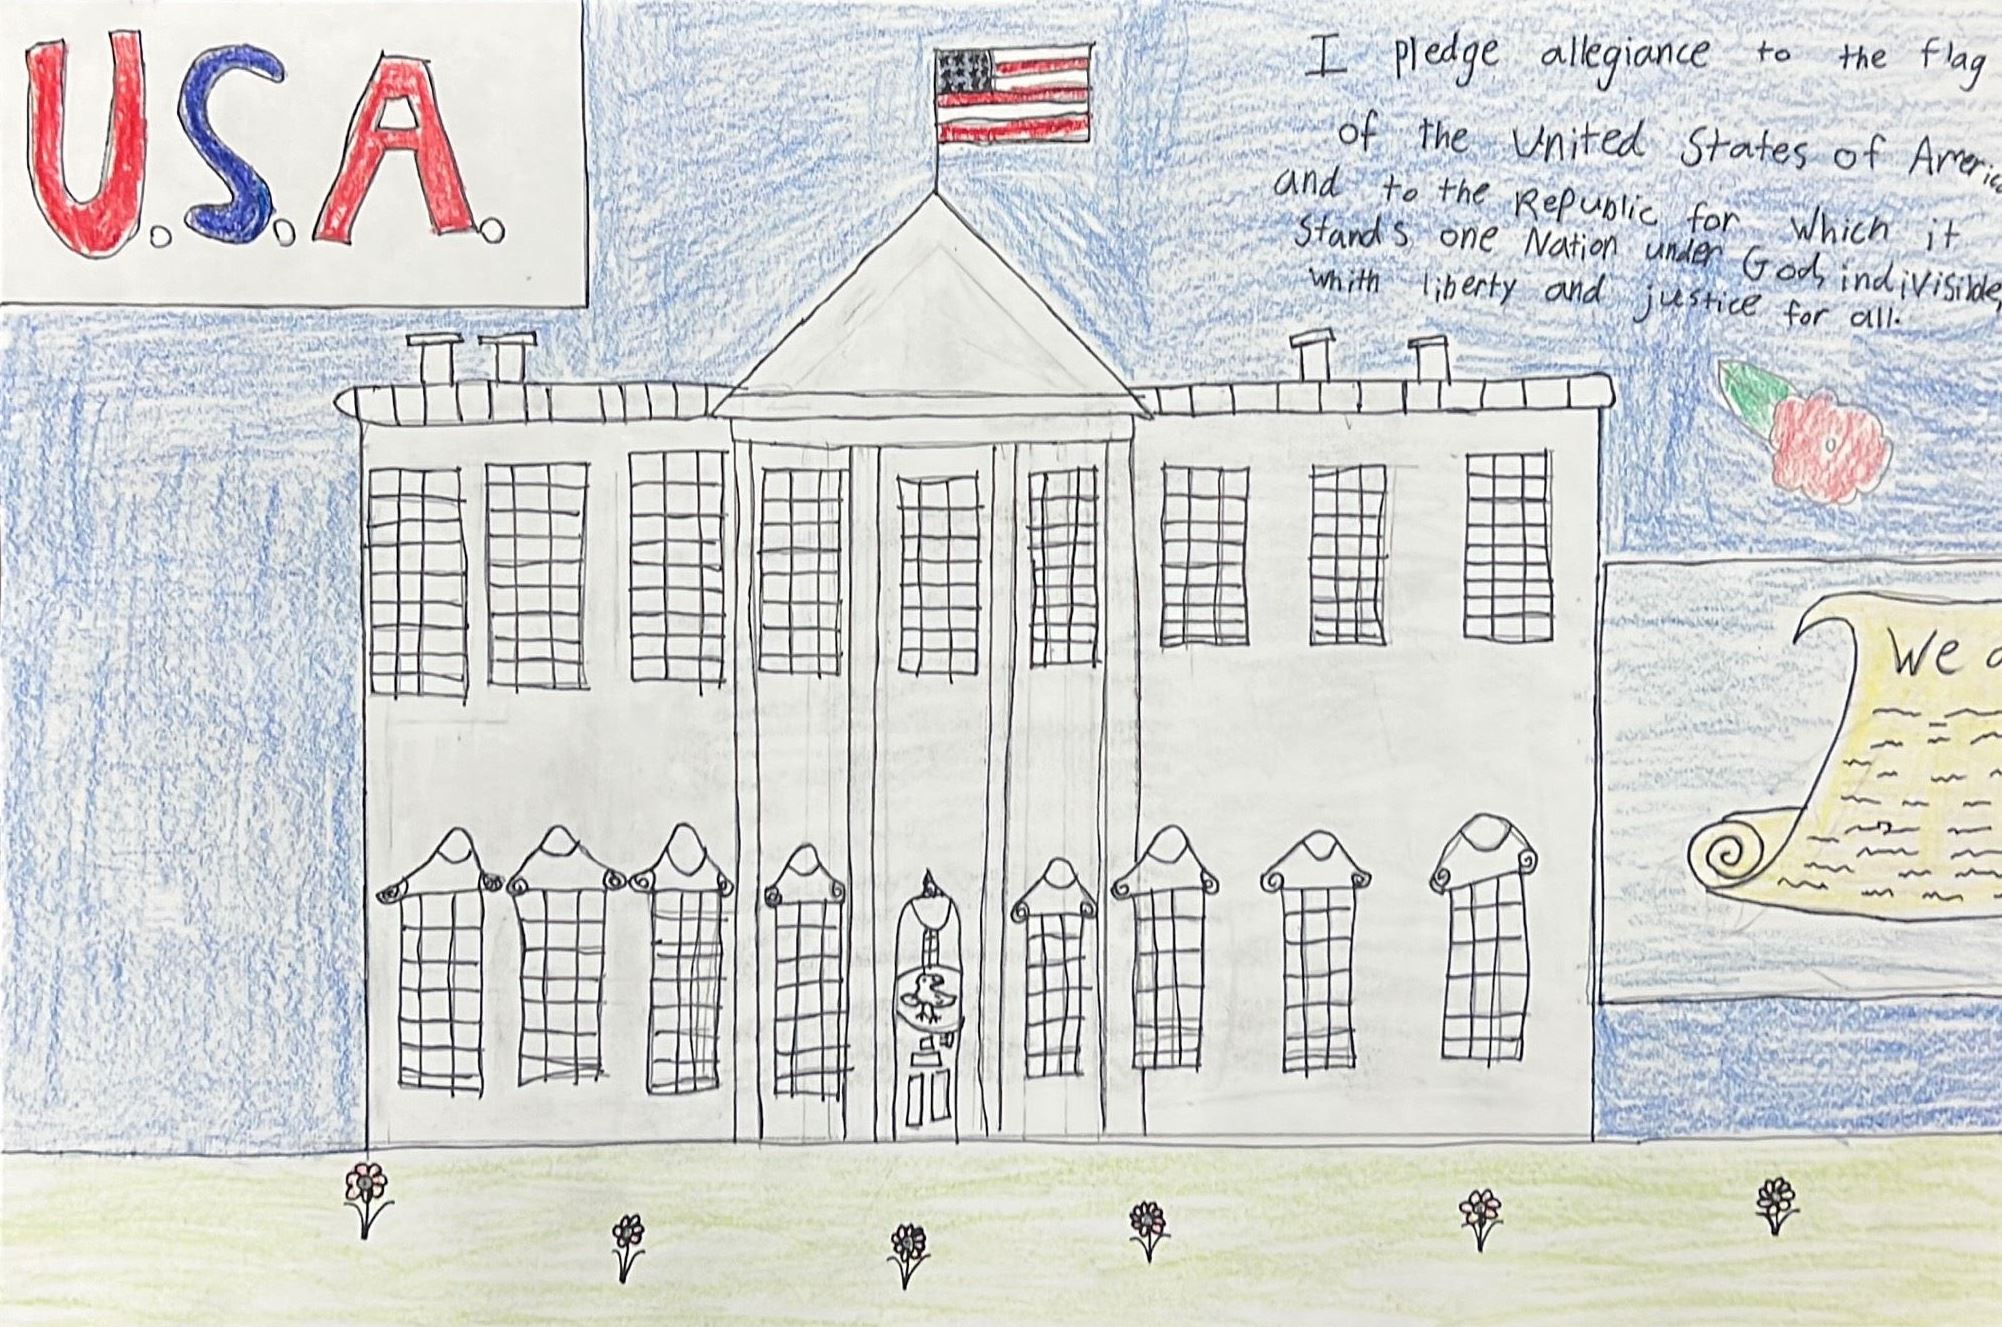 U.S.A.
I pledge allegiance to the flag
of the United States of Americ
and to the Republic for which it
stands one Nation under God, indivisible,
whith liberty and justice for all.
We